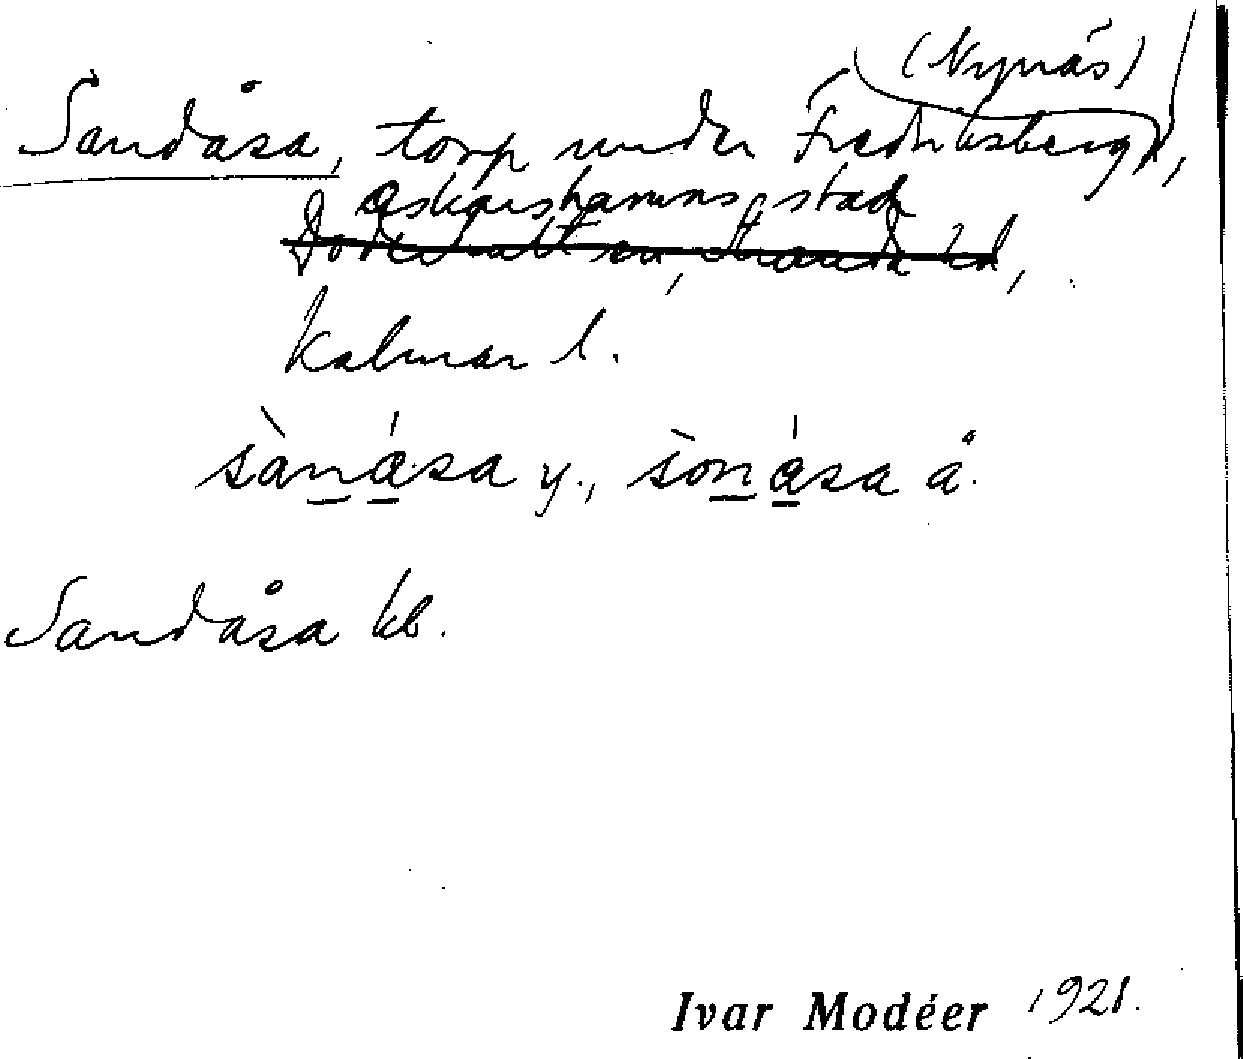 (Nynäs)
Sandåsa, torp under Fredriksberg,
Oskarshamns stad
Döderhult sn, Stranda hd,
Kalmar l.
sànása y., sònása ä.
Sandåsa kb.
Ivar Modéer 1921.